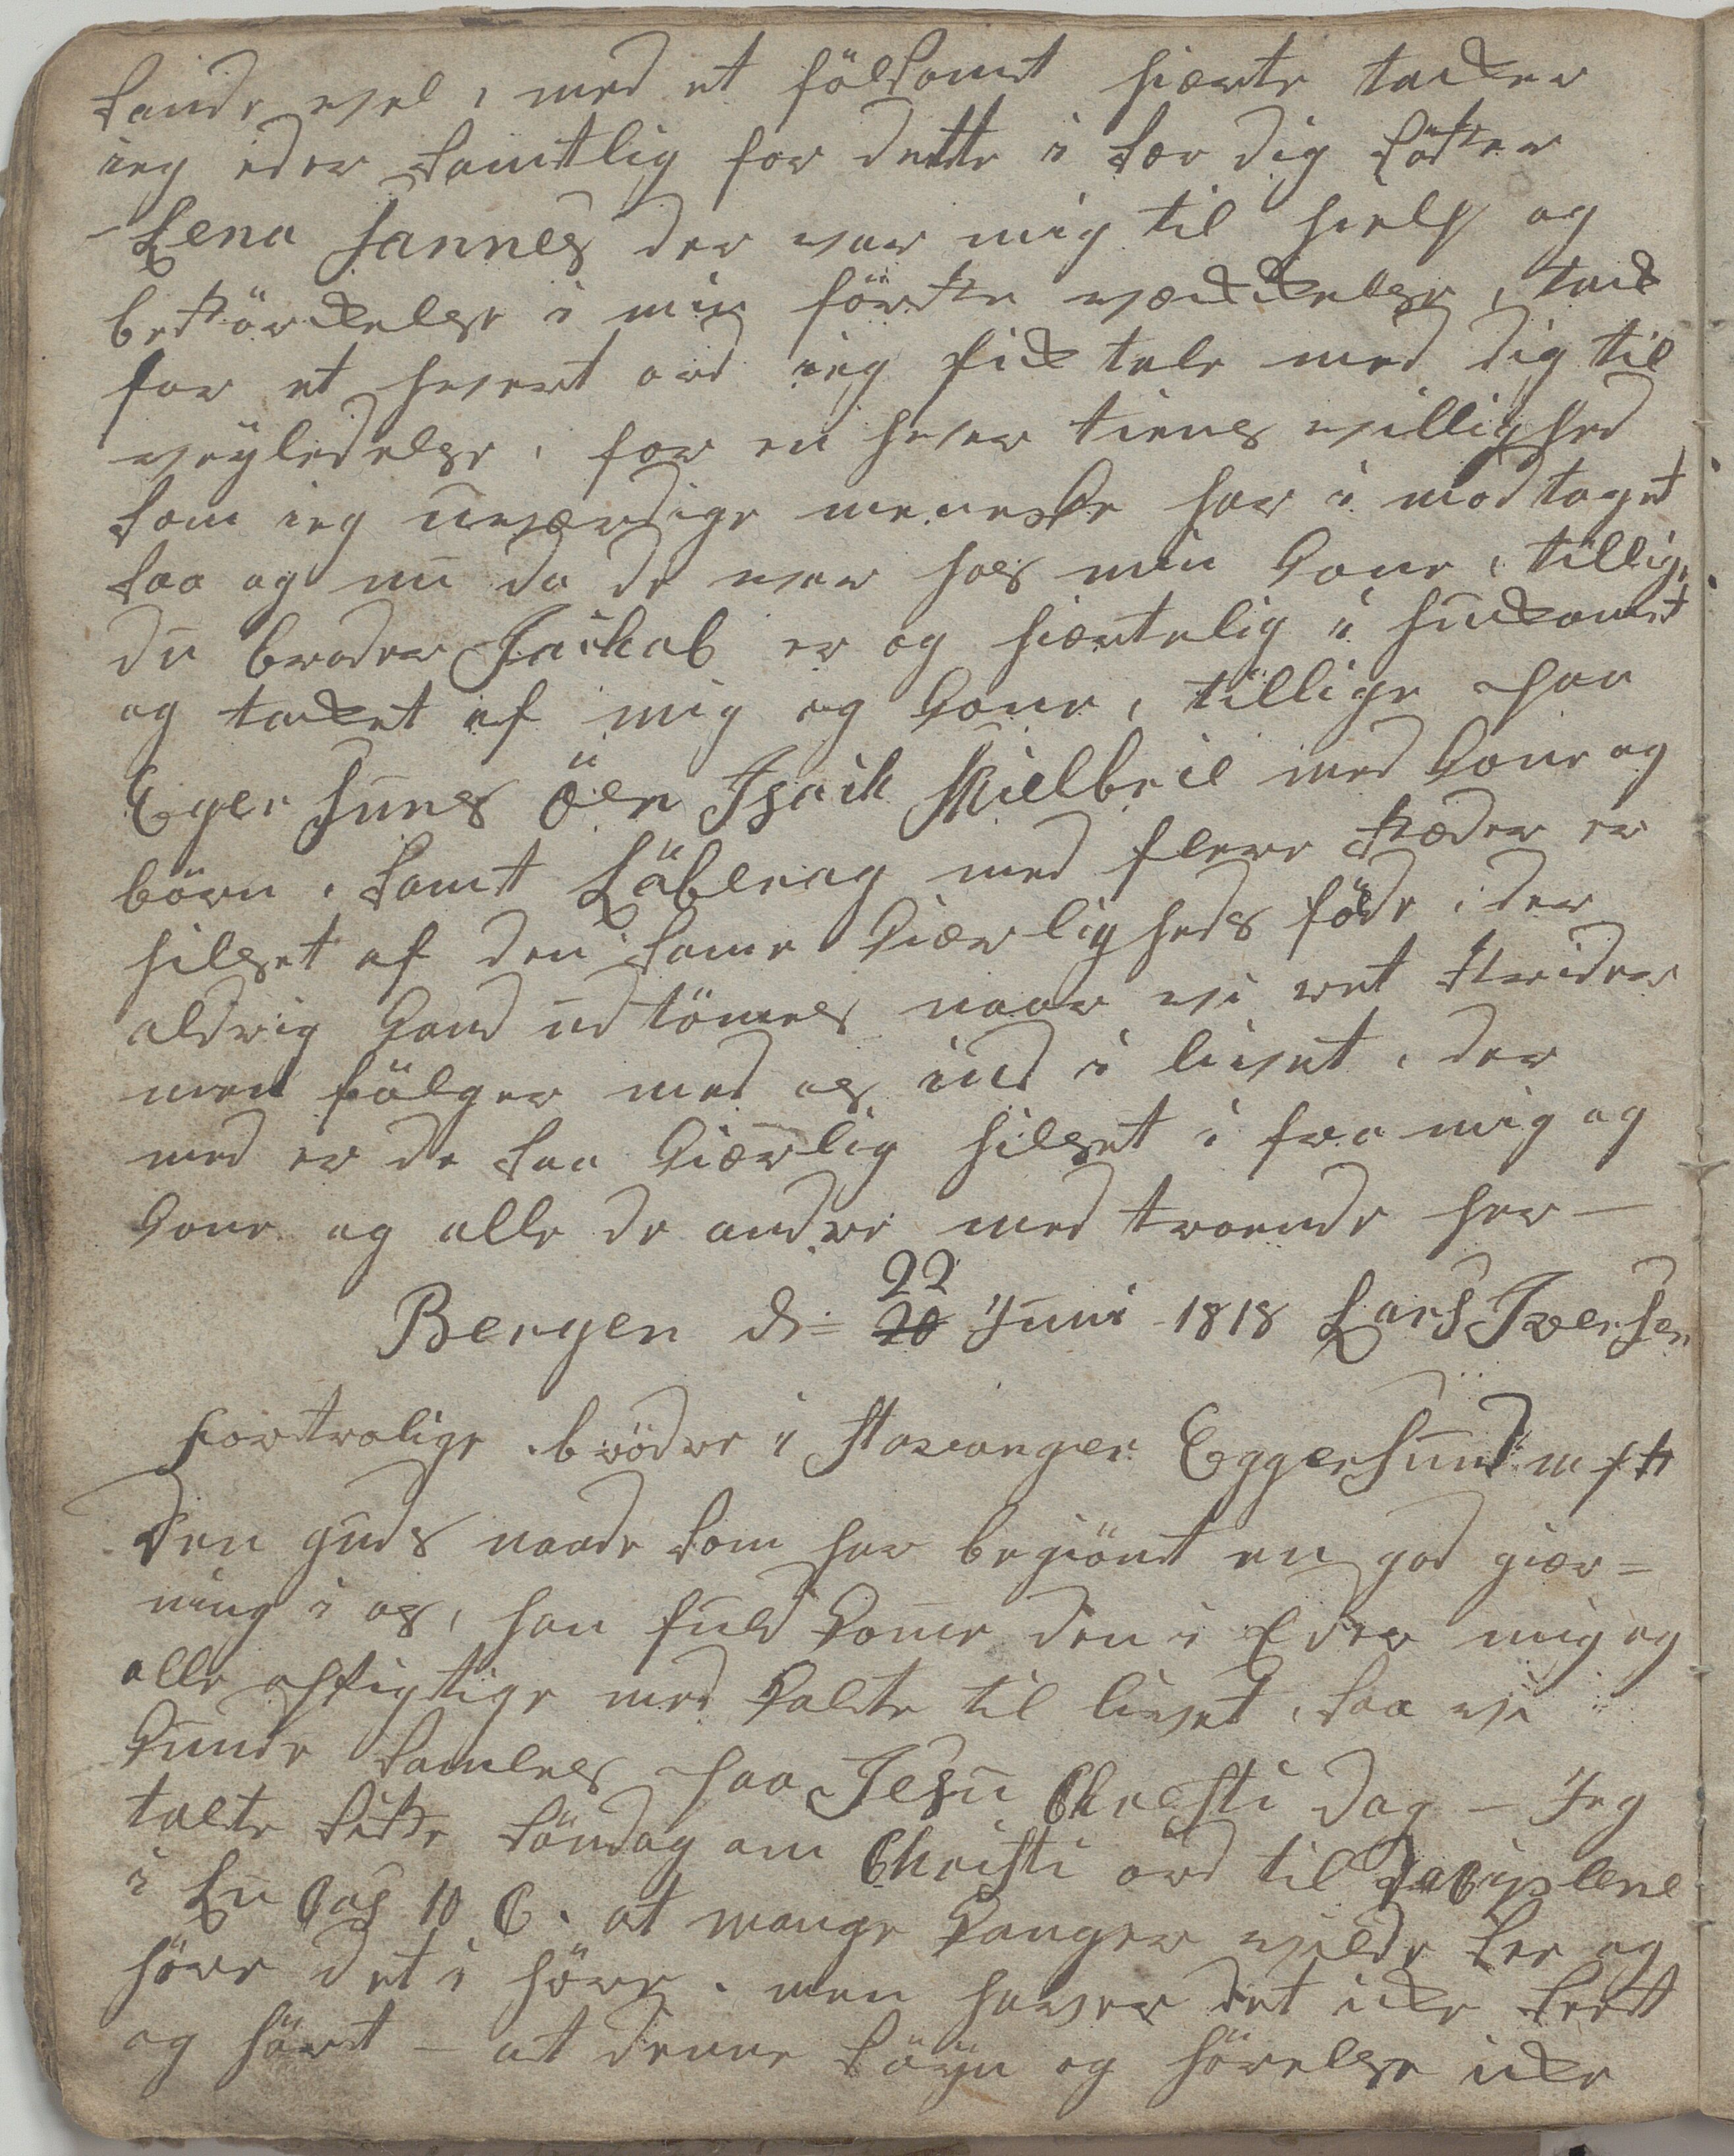 sande vel, med et fölsomt hierte tacker
ieg eder samtlig for dette i sær dig söster
Lena Hannes der var mig til hielp og
bestörckelse i min förste væckelse, tack
for et hvert ord ieg fick tale med dig til
veyledelse, for en hver tienes villighed
som ieg uværdige meneske har i mod taget
saa og nu da de var hos min Kone, tillige
du broder Jaikab er og hiertelig i hukomet
og tacket af mig og Kone, tillige paa
Eger Suns öen Isaik Mielbreil med Kone og
börn. samt Läblerag med flere stæder er
hilset af den same Kiærligheds föde, der
aldrig Kand udtömes naar vi ret strider
men fölger med os ind i livet, der
med er de saa Kiærlig hilset i fra mig og
Kone og alle de andre med troende her—
Bergen d= 22 20 Juni 1818 Lars Iversen
Fortrolige brödre i Stavanger Eggersund m fl
Den guds naade som har begiönt en god gier=
ning i os, han fuld Kome den i Eder mig og
alle opsigtige med Kalte til livet, saa vi
Kunde samles paa Jesu Chresti dag — Jeg
talte siste söndag om Christi ord til Deciplene
i Lu Cas 10 C. at mange Konger vilde see og
höre det i höre. men haver det icke seet
og hört — at denne söyn og hörelse icke